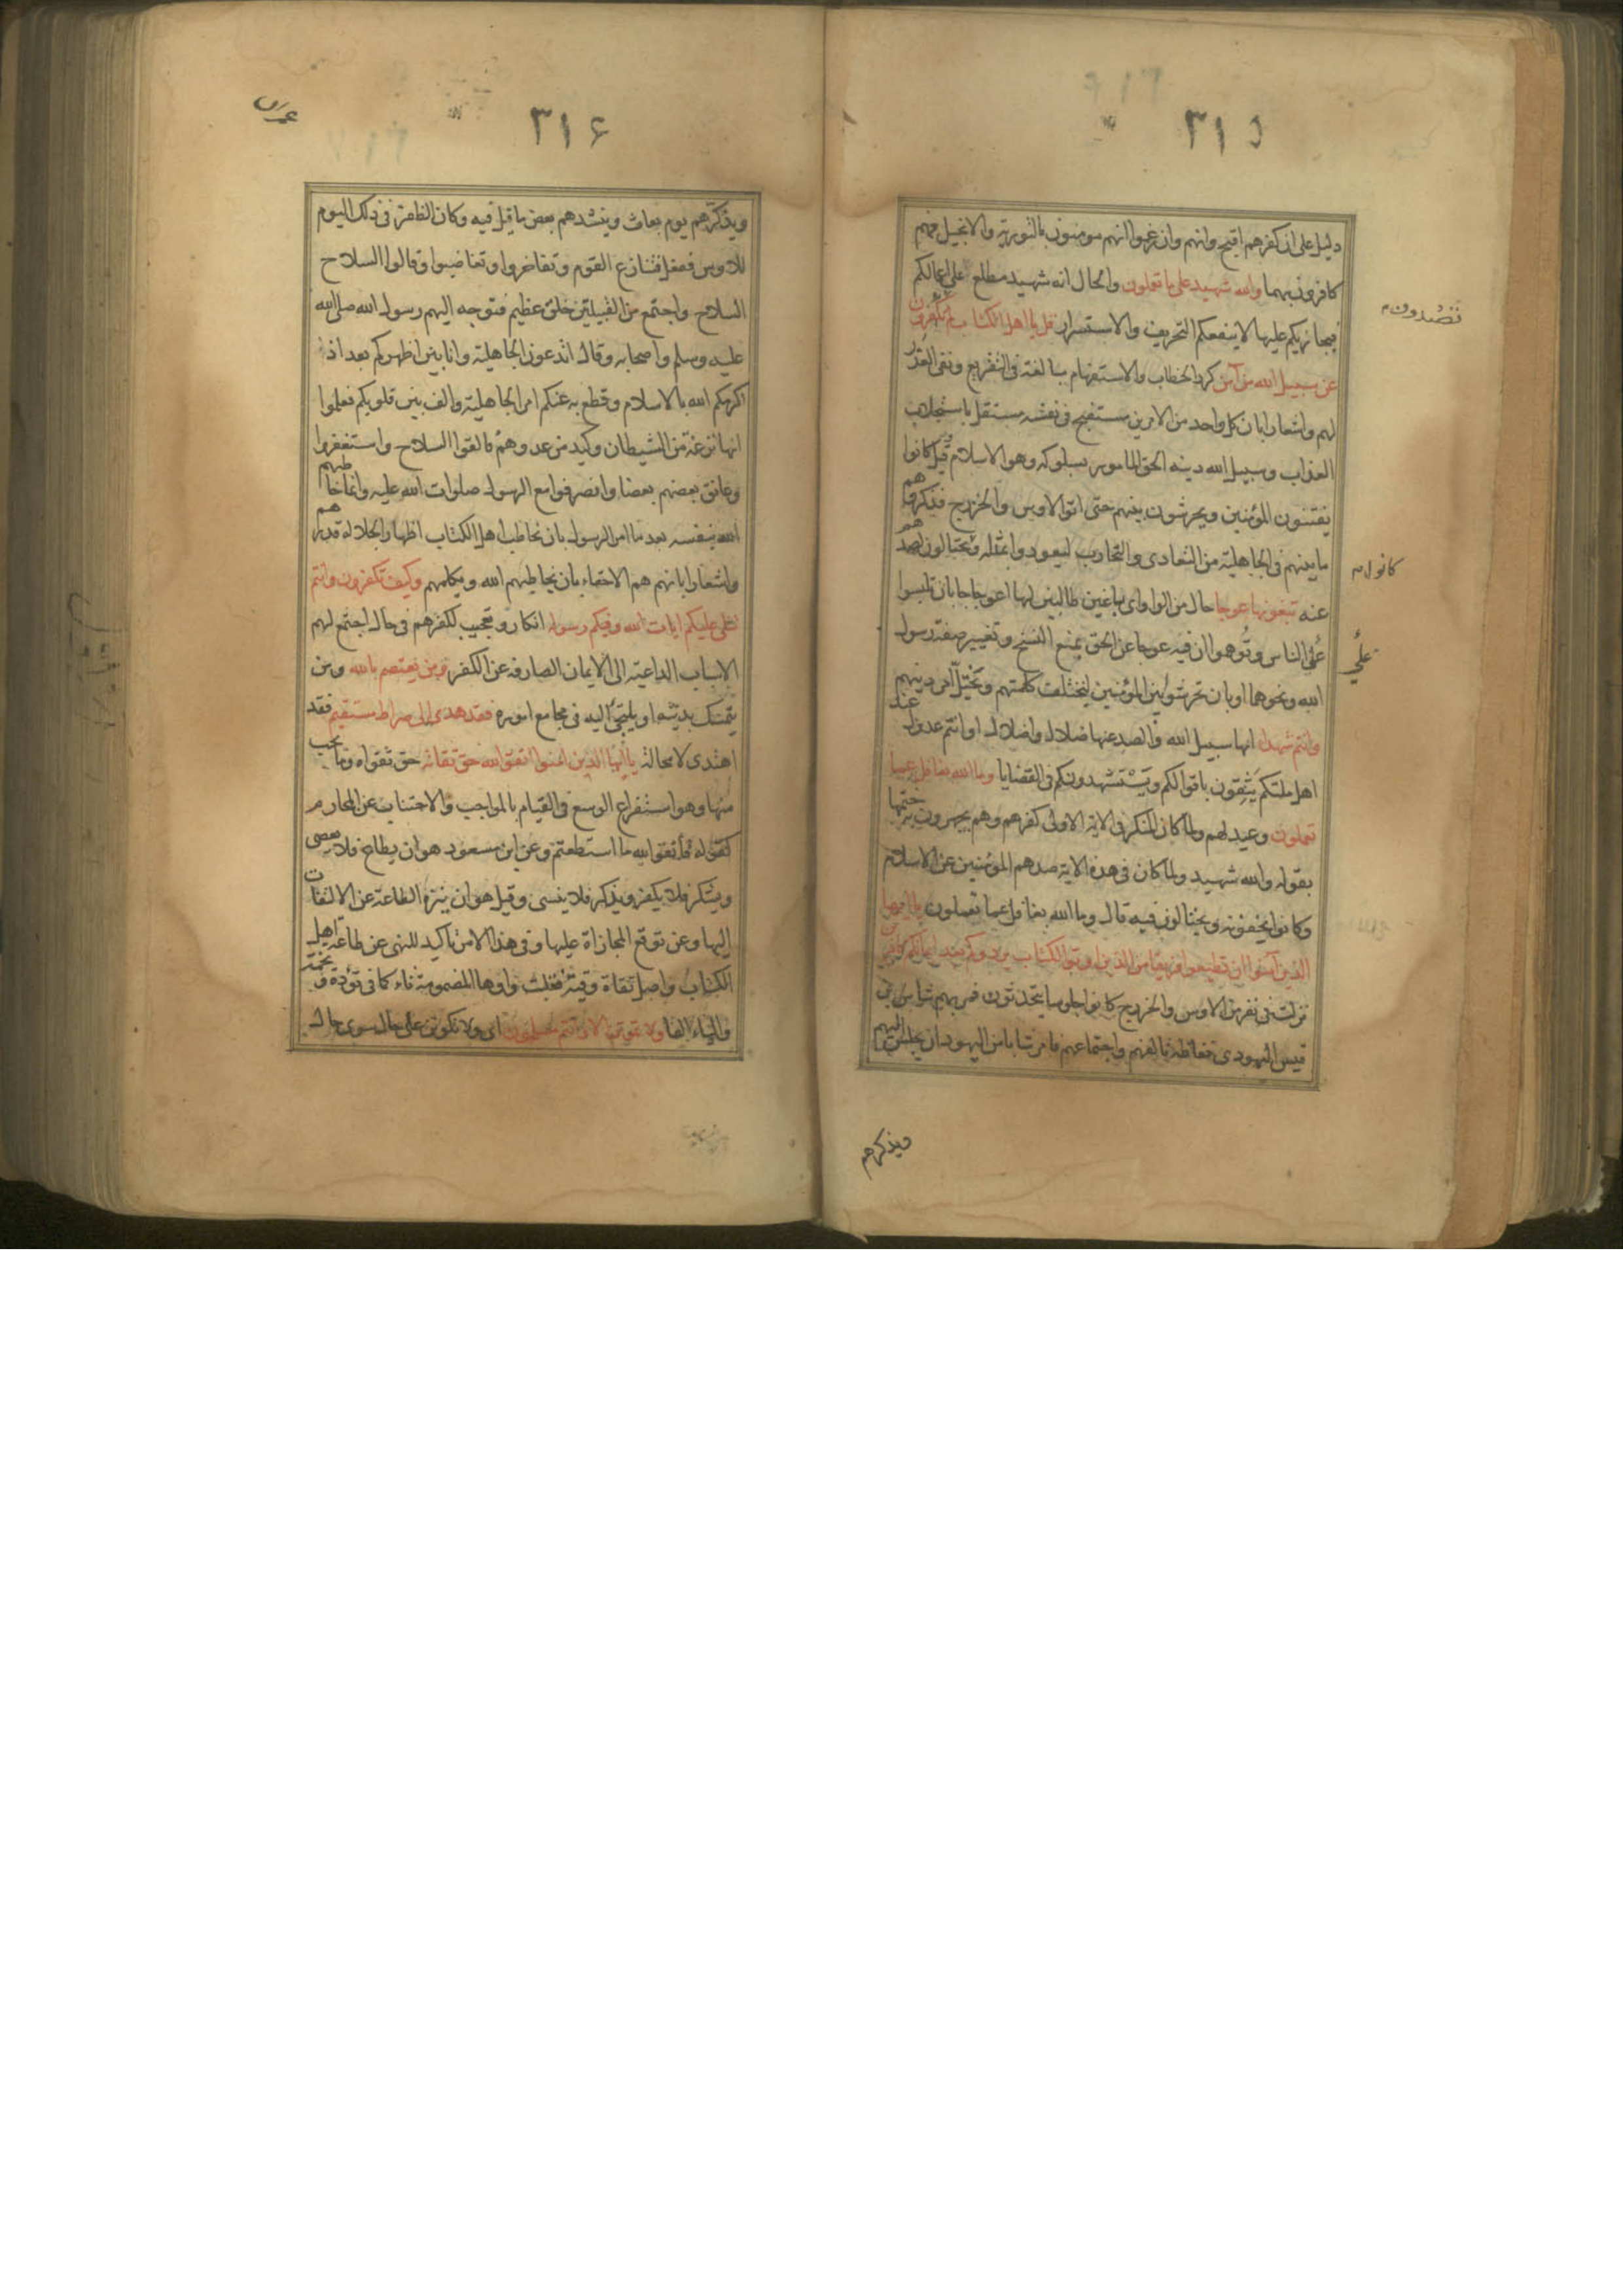 ٣١٥
دليل على ان كفرهم اقبح وانهم وان زعموا انهم مومنون بالتورية والانجيل فهم
كافرون بهما والله شهيد على ما تعلون والحال انه شهيد مطلع على اعمالكم
فيجازيكم عليها لا ينفعكم التحريف والاستسرار قل يا اهل الكتاب لم تكفرون
تصدون م
عن سبيل الله من آمن كرر الخطاب والاستفهام مبالغة فى التقريع ونفى العذر
لهم واشعارا بان كل واحد من الامرين مستقبح فى نفسه مستقل باستجلاب
العذاب وسبيل الله دينه الحق المامور بسلوكه وهو الاسلام قيل كانوا
يفتنون المؤمنين ويحرشون بينهم حتى اتوا الاوس والخزرج فذكروهم
ما بينهم فى الجاهلية من التعادى والتحارب ليعودوا لمثله ويحتالون لصدهم
كانوا م
عنه تبغونها عوجا حال من الواو اى باغين طالبين لها اعوجاجا بان تلبسوا
على الناس وتوهموا ان فيه عوجا عن الحق بمنع النسخ وتغيير صفة رسول
على
الله ونحوهما او بان تحرشوا بين المؤمنين ليختلف كلمتهم ويختل امر دينهم
وانتم شهداء انها سبيل الله والصد عنها ضلال واضلال او انتم عدول عند
اهل ملتكم يثقون باقوالكم ويستشهدونكم فى القضايا وما الله بغافل عما
تعملون وعيد لهم ولما كان المنكر فى الاية الاولى كفرهم وهم يجهرون به ختمها
بقوله والله شهيد ولما كان فى هذه الاية صدهم المؤمنين عن الاسلام
وكانوا يخفونه ويحتالون فيه قال وما الله بغافل عما تعملون يا ايها
الذين آمنوا ان تطيعوا فريقا من الذين اوتوا الكتاب يردوكم بعد ايمانكم كافرين
نزلت فى نفر من الاوس والخزرج كانوا جلوسا يتحدثون فمر بهم شاس بن
قيس اليهودى فغاظه تالفهم واجتماعهم فامر شابا من اليهود ان يجلس اليهم
ويذكرهم
عمران
٣١٤
ويذكرهم يوم بعاث وينشدهم بعض ما قيل فيه وكان الظفر فى ذلك اليوم
للاوس ففعل فتنازع القوم وتفاخروا وتغاضبوا وقالوا السلاح
السلاح واجتمع من القبيلتين خلق عظيم فتوجه اليهم رسول الله صلى الله
عليه وسلم واصحابه وقال اتدعون الجاهلية وانا بين اظهركم بعد اذ
اكرمكم الله بالاسلام وقطع به عنكم امر الجاهلية والف بين قلوبكم فعلموا
انها نزغة من الشيطان وكيد من عدوهم فالقوا السلاح واستغفروا
وعانق بعضهم بعضا وانصرفوا مع الرسول صلوات الله عليه وانما خاطبهم
الله بنفسه بعد ما امر الرسول بان يخاطب اهل الكتاب اظهارا لجلالة قدرهم
واشعارا بانهم هم الاحقاء بان يخاطبهم الله ويكلمهم وكيف تكفرون وانتم
تتلى عليكم ايات الله وفيكم رسوله انكار وتعجيب لكفرهم فى حال اجتمع لهم
الاسباب الداعية الى الايمان الصارفة عن الكفر ومن يعتصم بالله ومن
يتمسك بدينه او يلتجئ اليه فى مجامع اموره فقد هدى الى صراط مستقيم فقد
اهتدى لا محالة يا ايها الذين امنوا اتقوا الله حق تقاته حق تقواه وما يجب
منها وهو استفراغ الوسع فى القيام بالمواجب والاجتناب عن المحارم
كقوله فاتقوا الله ما استطعتم وعن ابن مسعود هو ان يطاع فلا يعصى
ويشكر فلا يكفر ويذكر فلا ينسى وقيل هو ان ينزه الطاعة عن الالتفات
اليها وعن توقع المجازاة عليها وفى هذا الامر تاكيد للنهى عن طاعة اهل
الكتاب واصل تقاة وقية فقلبت واوها المضمومة تاء كما فى تؤدة وتخمة
والياء الفا ولا تموتن الا وانتم مسلمون اى ولا تكونن على حال سوى حال